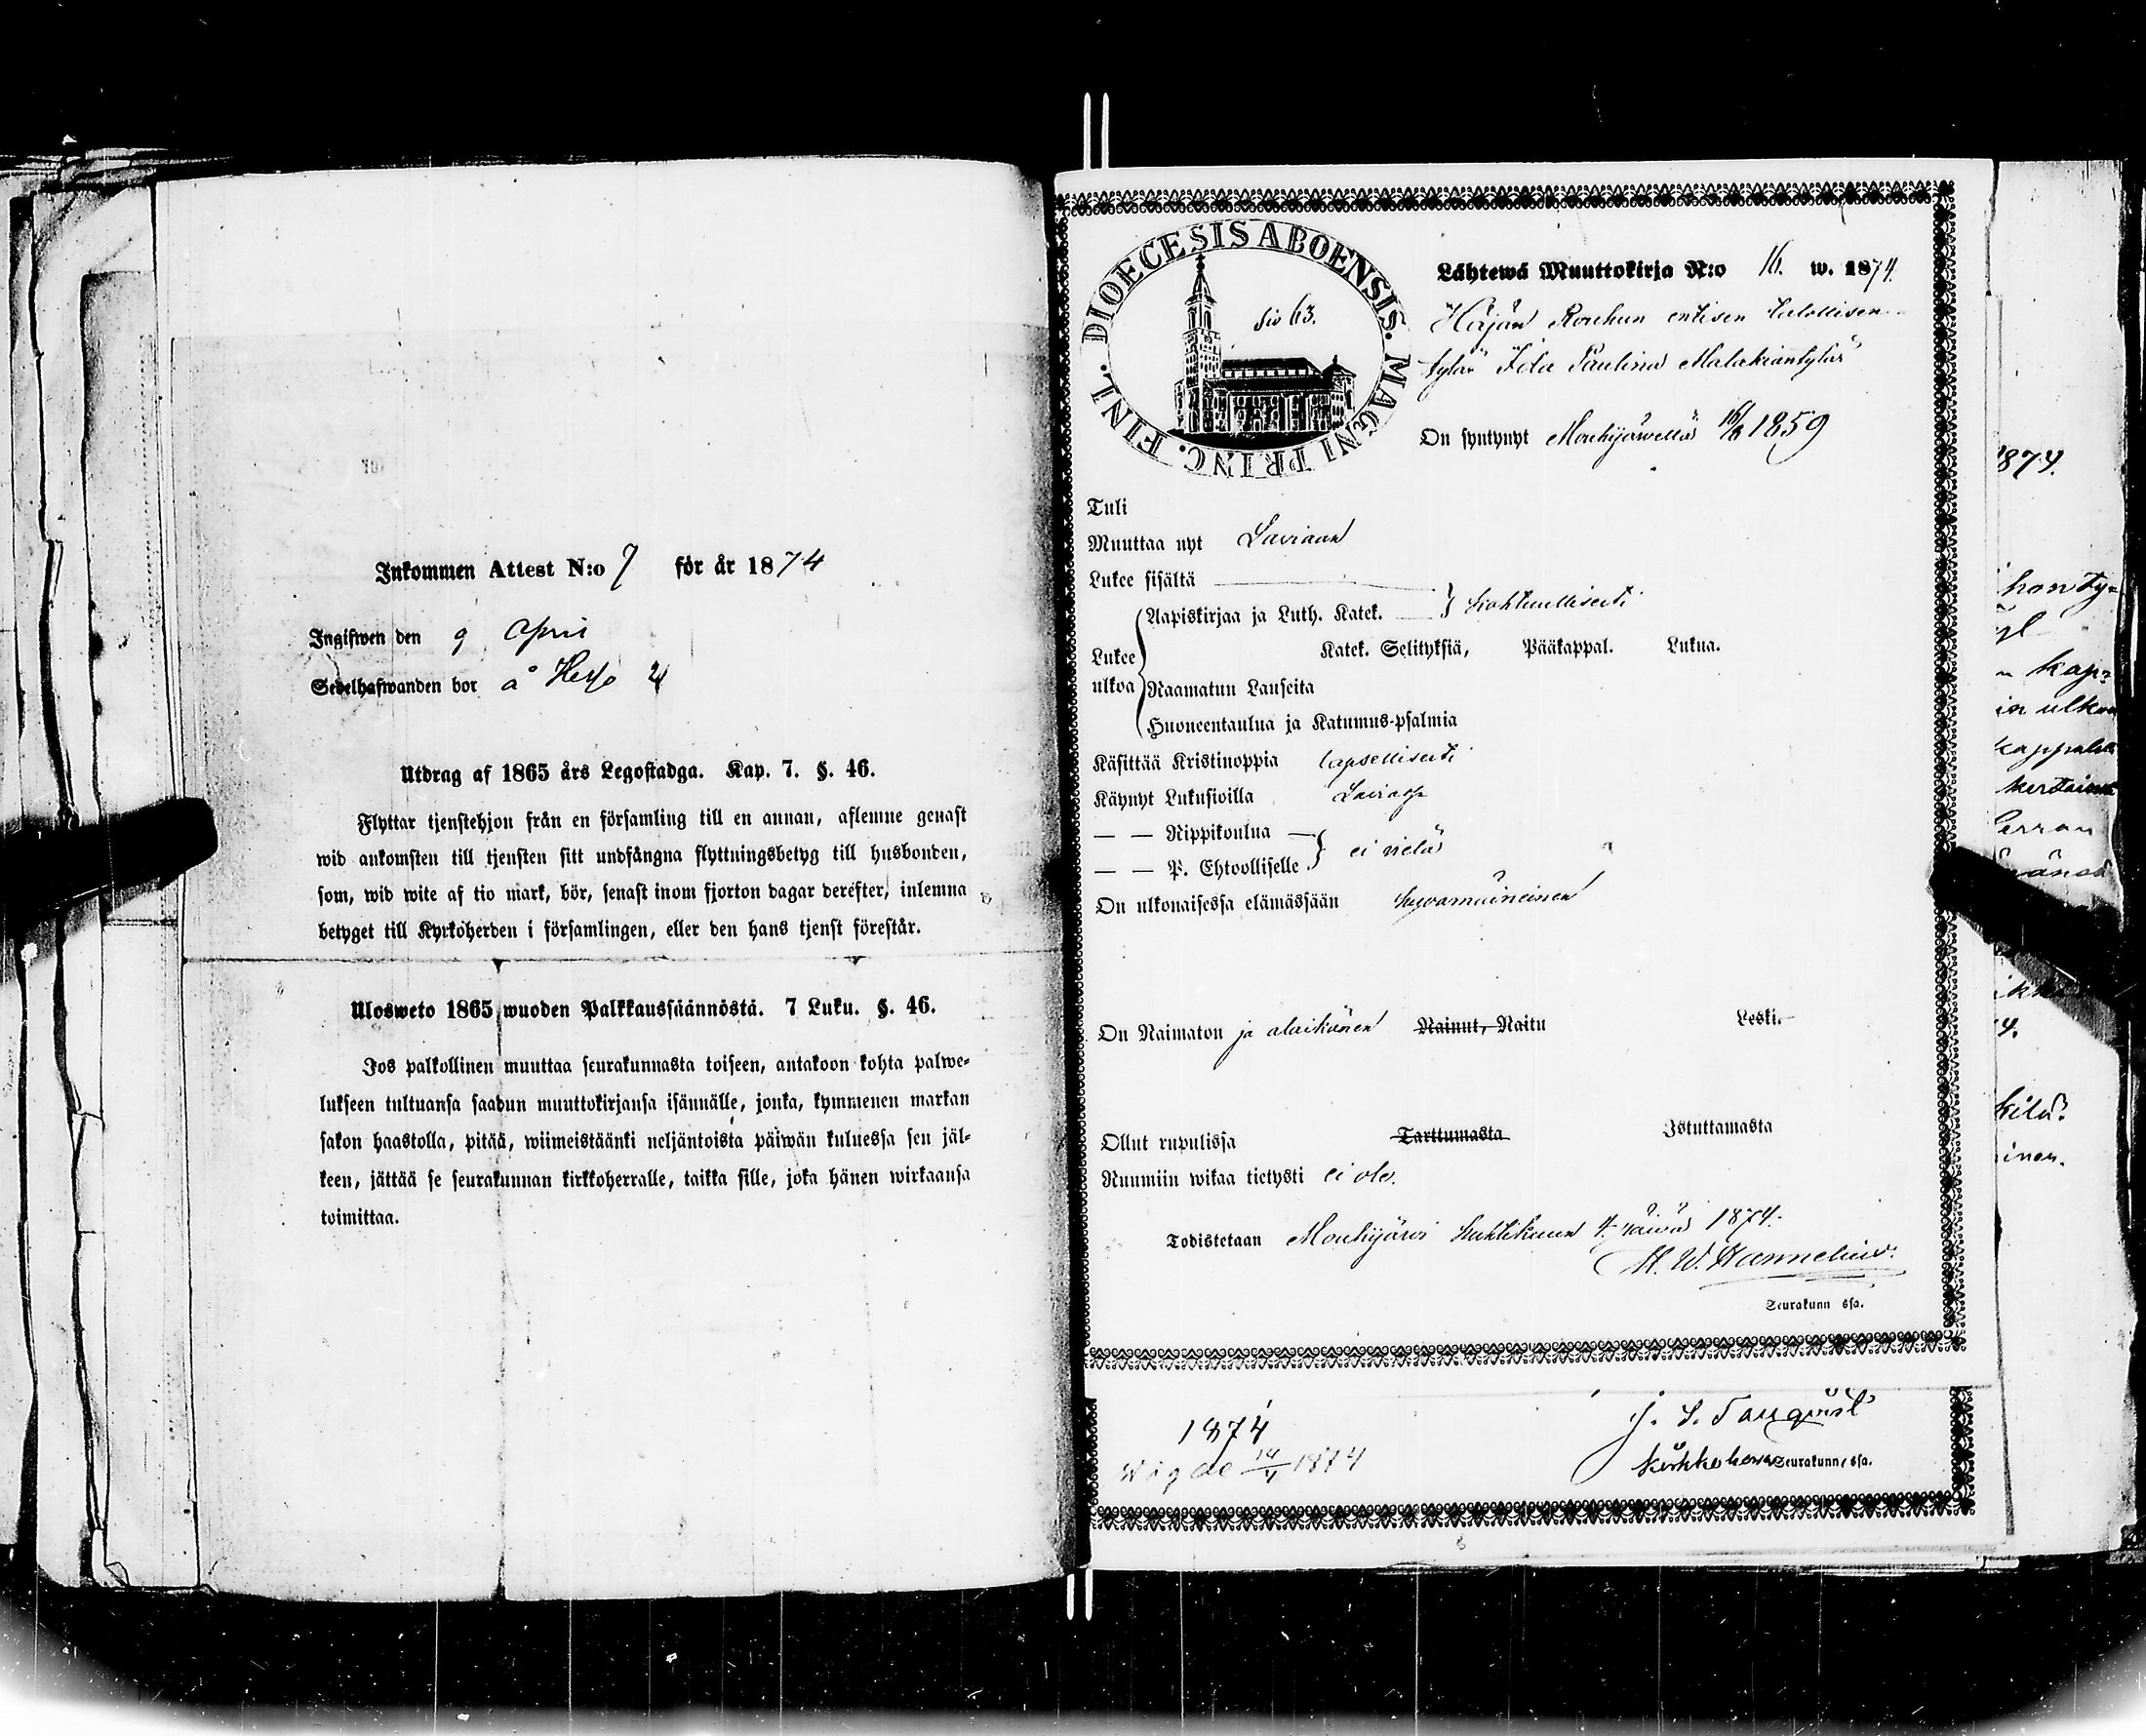 Inkommen Attest N:o 7 för år 1874
Ingifwen den 9 April
Sedelhafwanden bor å
Utdrag af 1865 års Legostadga. Kap. 7. §. 46.
Flyttar tjenstehjon från en församling till en annan, aflemne genast
wid ankomsten till tjensten sitt undfångna flyttningsbetyg till husbonden,
som, wid wite af tio mark, bör, senast inom fjorton dagar derefter, inlemna
betyget till Kyrkoherden i församlingen, eller den hans tjenst förestår.
Ulosweto 1865 wuoden Palkkaussäännöstä. 7 Luku. §. 46.
Jos palkollinen muuttaa seurakunnasta toiseen, antakoon kohta palwe-
lukseen tultuansa saadun muuttokirjansa isännälle, jonka, kymmenen markan
sakon haastolla, pitää, wiimeistäänki neljäntoista päiwän kuluessa sen jäl-
keen, jättää se seurakunnan kirkkoherralle, taikka sille, joka hänen wirkaansa
toimittaa.
DIOECESIS ABOENSIS. MAGNI PRINC. FINL.
siv 63.
Lähtewä Muuttokirja N:o 16. w. 1874.
Höijän Rouhun entisen talollisen
tytär Ida Paulina Malakiantytär
On syntynyt Mouhijärwellä 1859
Tuli
Muuttaa nyt Laviaan
Lukee sisältä
Aapiskirjaa ja Luth. Katek. } kohtuullisesti
Lukee ulkoa
Katek. Selityksiä, Pääkappal. Lukua.
Raamatun Lauseita
Huoneentaulua ja Katumus-psalmia
Käsittää Kristinoppia lapsellisesti
Käynyt Lukusiwilla Laviassa
— — Rippikoulua —
— — P. Ehtoolliselle } ei vielä
On ulkonaisessa elämässään hyvämaineinen
On Naimaton ja alaikäinen Nainut, Naitu Leski.
Ollut rupulissa Tarttumasta Istuttamasta
Ruumiin wikaa tietysti ei ole.
Todistetaan Mouhijärvi huhtikuun 4 päivä 1874.
H. W. Hannelius.
Seurakunn ssa.
1874
14/4 1874
kirkkoherra Seurakunn ssa.
1874.